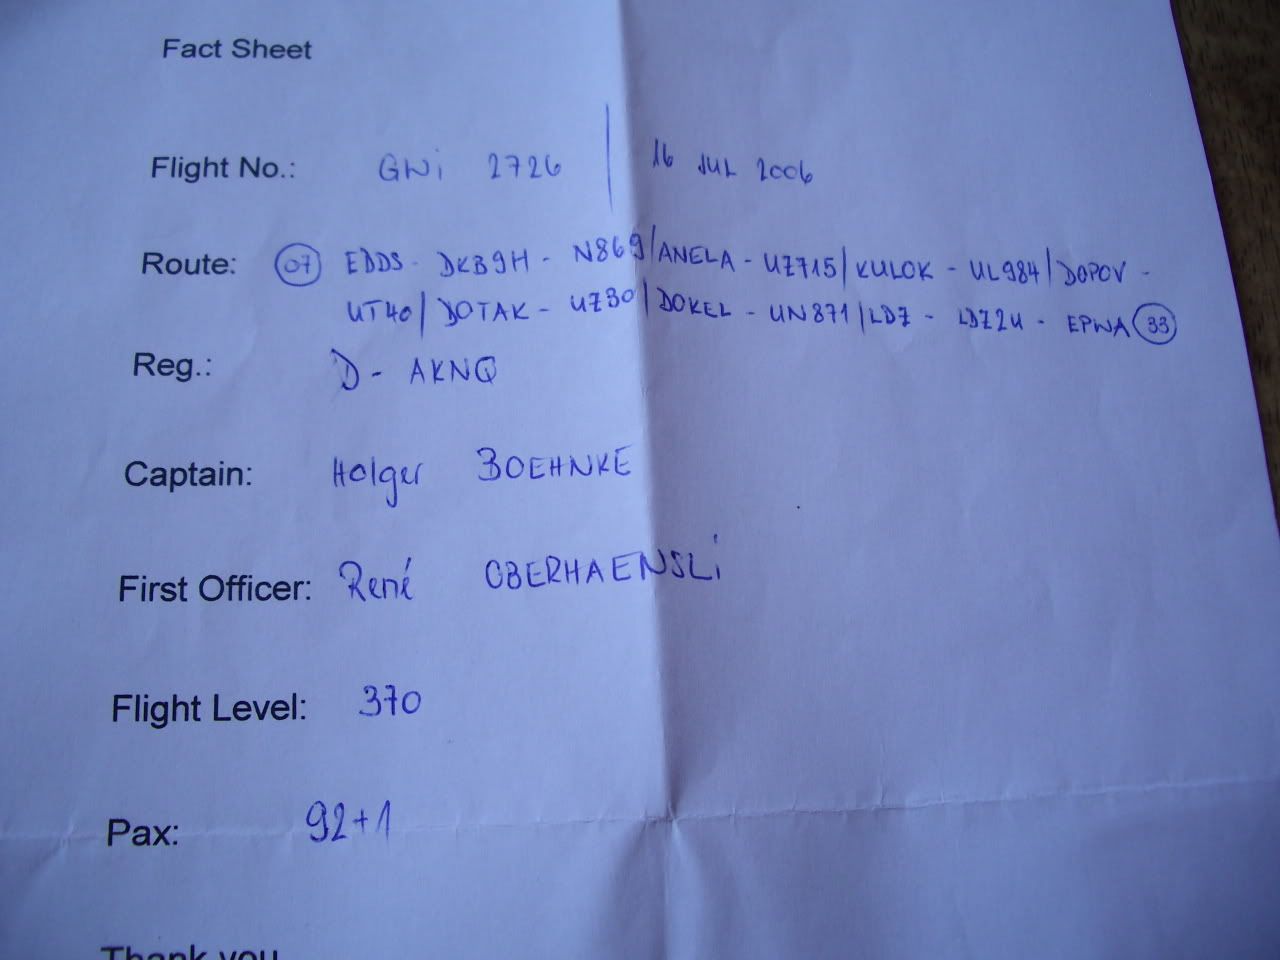 Fact Sheet
Flight No.: GWi 2726 | 16 JUL 2006
Route: 07 EDDS - DKB9H - N869/ANELA - UZ715/KULOK - UL984/DOPOV -
UT40/DOTAK - UZ30/DOKEL - UN871/LDZ - LDZ2U - EPWA 33
Reg.: D - AKNQ
Captain: Holger BOEHNKE
First Officer: René OBERHAENSLi
Flight Level: 370
Pax: 92+1
Thank you